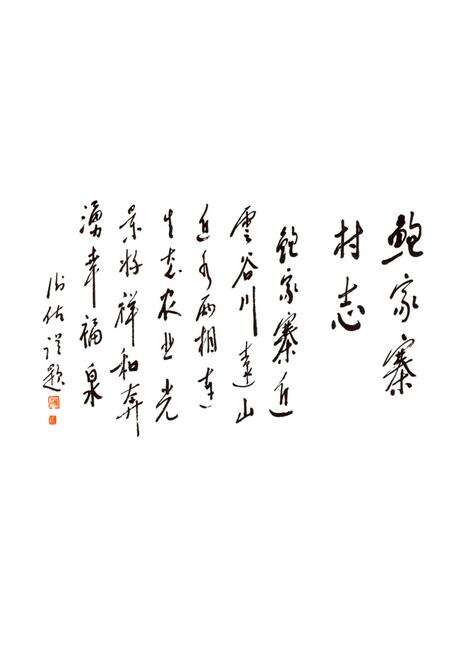 鲍家寨
村志
鲍家寨近
云谷川远山
近水两相连
生态农业光
景好祥和奔
涌幸福泉
谨题